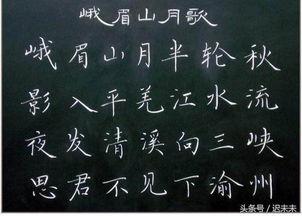 峨眉山月歌
峨眉山月半轮秋
影入平羌江水流
夜发清溪向三峡
思君不见下渝州
头条号／迟未未